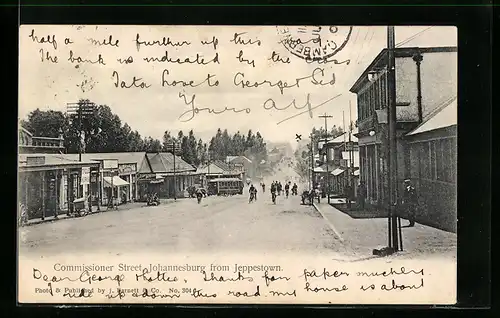 half a mile further up this road
The bank is indicated by the cross
Tata Love to George & Cd
Yours Alf
CAMBER
Commissioner Street, Johannesburg from Jeppestown.
Photo & Published by J. Barnett & Co. No. 304
Dear George Thanks for paper muchly
I ride up & down this road, my house is about